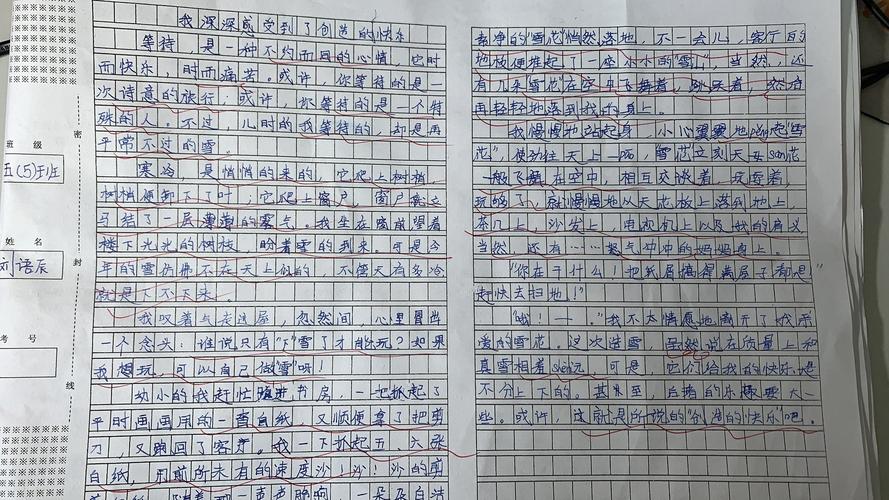 班级
五(5)班
姓名
刘语辰
考号
密
封
线
我深深感受到了创造的快乐
等待，是一种不约而同的心情，它时
而快乐，时而痛苦。或许，你等待的是一
次诗意的旅行；或许，你等待的是一个特
殊的人。不过，儿时的我等待的，却是再
平常不过的雪。
寒冷，是悄悄的来的，它爬上树梢，
树梢便卸下了叶；它爬上窗户，窗户便立
马结了一层薄薄的雾气。我坐在窗前望着
楼下光光的树枝，盼着雪的到来，可是今
年的雪仿佛不在天上似的，不管天有多冷
就是下不下来。
我叹着气走进屋，忽然间，心里冒出
一个念头：谁说只有"下"雪了才能玩？如果
我想玩，可以自己做"雪"呀！
幼小的我赶忙跑进书房，一把抓起了
平时画画用的一沓白纸，又顺便拿了把剪
刀，又跑回了客厅。我一下抓起五、六张
白纸，用前所未有的速度沙！沙！沙的剪
一声声脆响，一朵朵白洁
素净的"雪花"悄然落地，不一会儿，客厅的
地板便堆起了一座小小的"雪"，当然，还
有几朵"雪花"在空中飞舞着，跳跃着，然后
再轻轻地落到我的身上。
我慢慢地站起身，小心翼翼地pěng起"雪
花"，使劲往天上一，"雪花"立刻天女san花
一般飞舞在空中，相互交谈着，玩耍着，
玩够了，就慢慢地从天花板上落到地上，
茶几上，沙发上，电视机上以及我的肩
当然，还有……怒气冲冲的妈妈身上。
"你在干什么！把纸屑搞得满屋子都是"
赶快去扫地！"
"哦！——。"我不太情愿地离开了我亲
爱的雪花。这次造雪，虽然说在质量上和
真雪相差甚远，可是，它们给我的快乐是
不分上下的。甚至，自造的乐趣要大一
些。或许，这就是所说的"创造的快乐"吧。